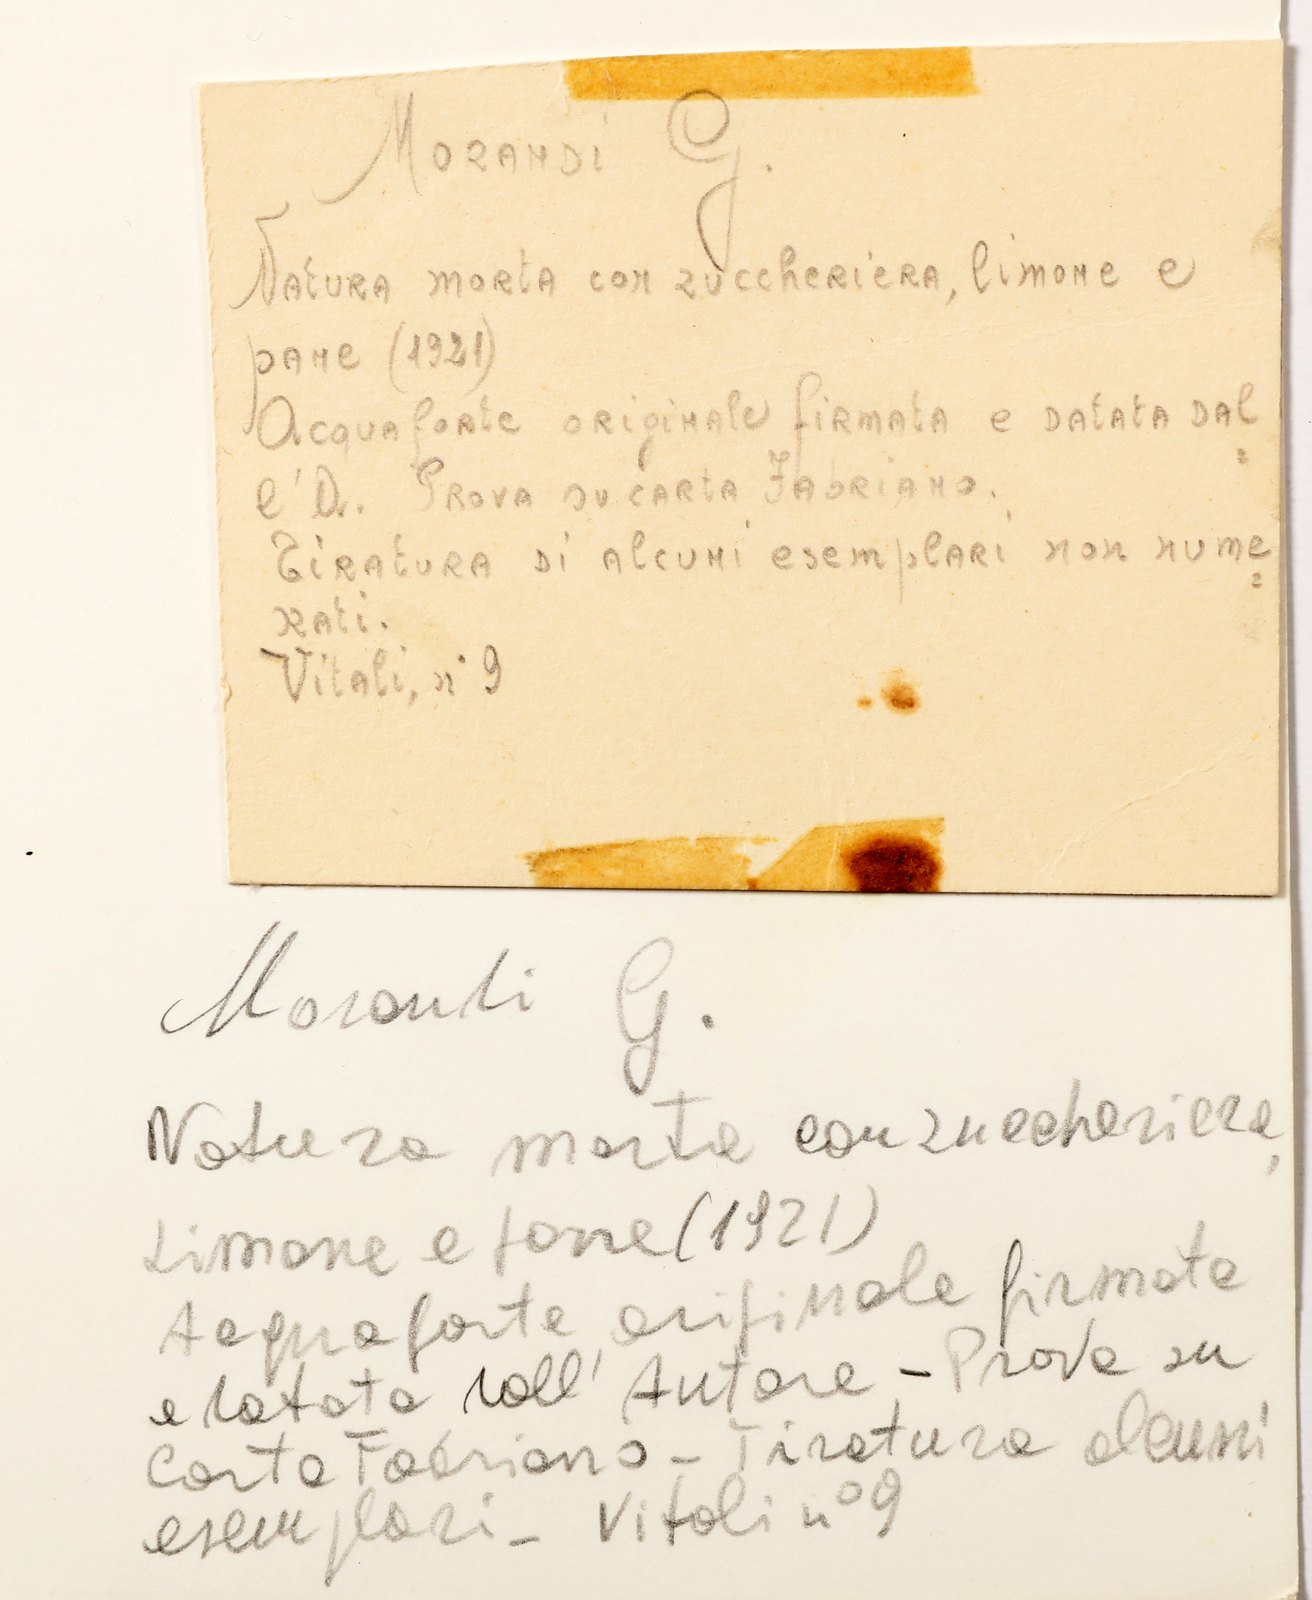 Morandi G.
Natura morta con zuccheriera, limone e
pane (1921)
Acquaforte originale firmata e datata dal=
l'A. Prova su carta Fabriano.
Tiratura di alcuni esemplari non nume=
rati.
Vitali, n° 9
Morandi G.
Natura morta con zuccheriera,
Limone e pane (1921)
Acquaforte originale firmata
e datata dall'Autore - Prova su
Carta Fabriano - Tiratura alcuni
esemplari - Vitali n° 9